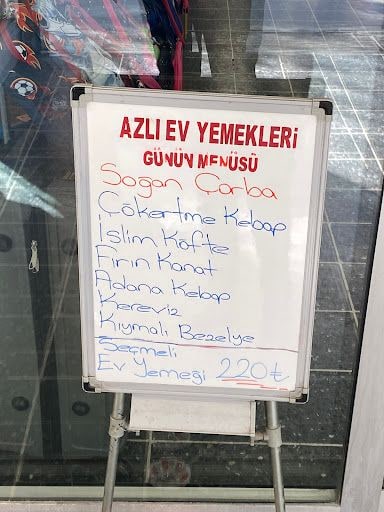 AZLI EV YEMEKLERİ
GÜNÜN MENÜSÜ
Soğan Çorba
Çökertme Kebap
İslim Köfte
Fırın Kanat
Adana Kebap
Kereviz
Kıymalı Bezelye
Seçmeli
Ev Yemeği 220₺